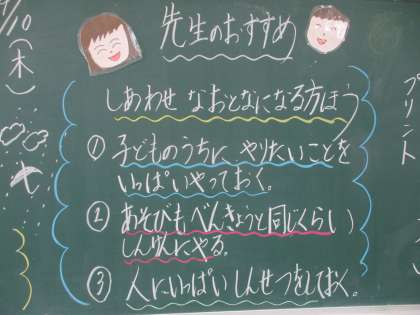 /10
(木)
先生のおすすめ
しあわせなおとなになる方ほう
① 子どものうちに やりたいことを
いっぱいやっておく。
② あそびもべんきょうと同じくらい
しんけんにやる。
③ 人にいっぱいしんせつをしておく。
プリント